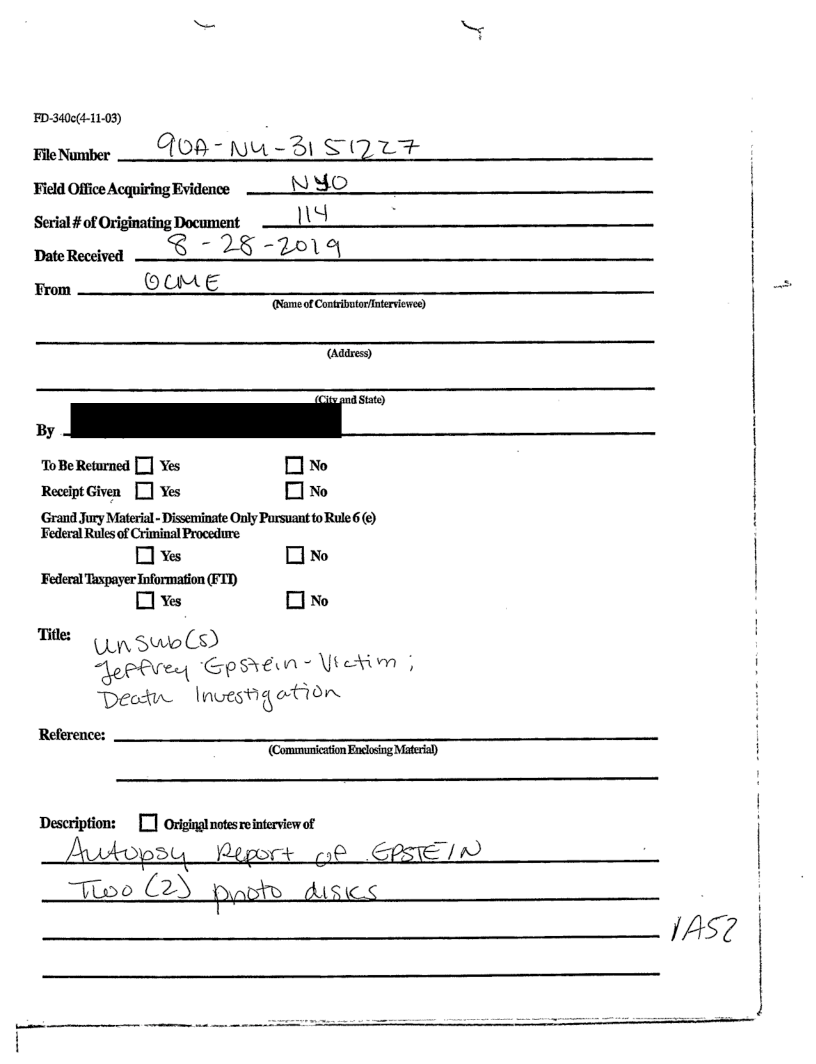 FD-340c(4-11-03)
File Number 90A-NY-3151227
Field Office Acquiring Evidence NYO
Serial # of Originating Document 114
Date Received 8-28-2019
From OCME
(Name of Contributor/Interviewee)
(Address)
(City and State)
By
To Be Returned Yes No
Receipt Given Yes No
Grand Jury Material - Disseminate Only Pursuant to Rule 6 (e)
Federal Rules of Criminal Procedure
Yes No
Federal Taxpayer Information (FTI)
Yes No
Title: UnSub(s)
Jeffrey Epstein - Victim;
Death Investigation
Reference:
(Communication Enclosing Material)
Description: Original notes re interview of
Autopsy Report of EPSTEIN
Two (2) photo disks
1A52